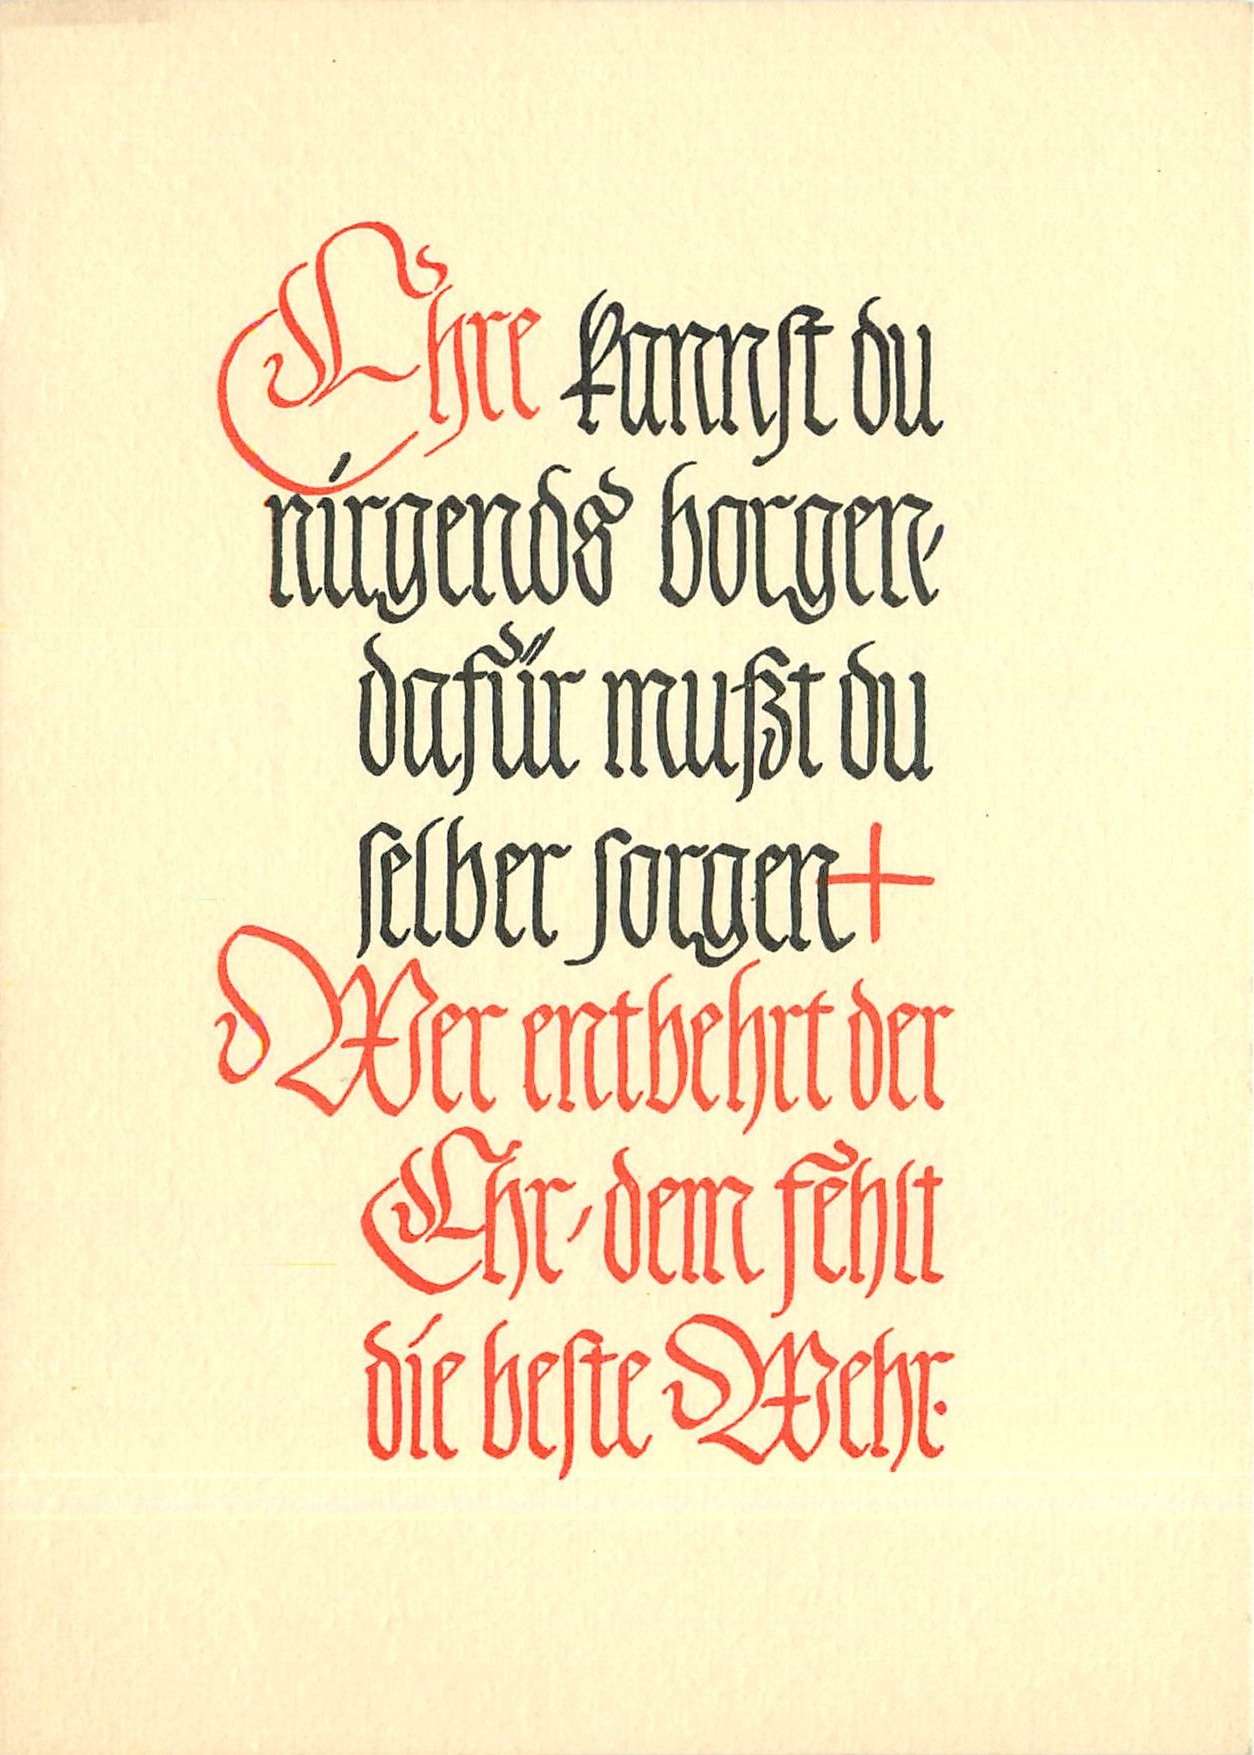 Ehre kannst du
nirgends borgen,
dafür mußt du
selber sorgen+
Wer entbehrt der
Ehr, dem fehlt
die beste Wehr.